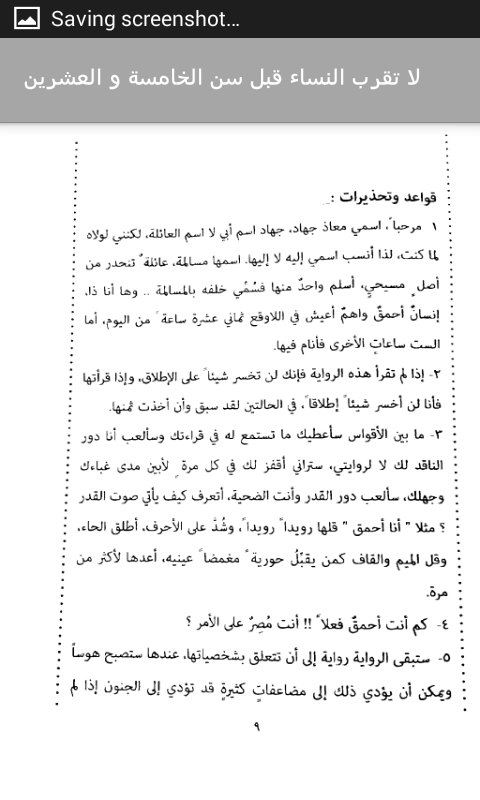 Saving screenshot...
لا تقرب النساء قبل سن الخامسة و العشرين
قواعد وتحذيرات :
١ مرحباً، اسمي معاذ جهاد، جهاد اسم أبي لا اسم العائلة، لكنني لولاه
لما كنت، لذا أنسب اسمي إليه لا إليها. اسمها مسالمة، عائلةٌ تنحدر من
أصلٍ مسيحيٍ، أسلم واحدٌ منها فسُمِّي خلفه بالمسالمة .. وها أنا ذا،
إنسانٌ أحمقٌ واهمٌ أعيش في اللاوقع ثماني عشرة ساعةً من اليوم، أما
الست ساعاتٍ الأخرى فأنام فيها.
٢- إذا لم تقرأ هذه الرواية فإنك لن تخسر شيئاً على الإطلاق، وإذا قرأتها
فأنا لن أخسر شيئاً إطلاقاً، في الحالتين لقد سبق وأن أخذت ثمنها.
٣- ما بين الأقواس سأعطيك ما تستمع له في قراءتك وسألعب أنا دور
الناقد لك لا لروايتي، ستراني أقفز لك في كل مرةٍ لأبين مدى غباءك
وجهلك، سألعب دور القدر وأنت الضحية، أتعرف كيف يأتي صوت القدر
؟ مثلا " أنا أحمق " قلها رويداً رويداً، وشُدَّ على الأحرف، أطلق الحاء،
وقل الميم والقاف كمن يقبِّلُ حوريةً مغمضاً عينيه، أعدها لأكثر من
مرة.
٤- كم أنت أحمقٌ فعلاً !! أنت مُصِرٌ على الأمر ؟
٥- ستبقى الرواية رواية إلى أن تتعلق بشخصياتها، عندها ستصبح هوساً
ويمكن أن يؤدي ذلك إلى مضاعفاتٍ كثيرةٍ قد تؤدي إلى الجنون إذا لم
٩